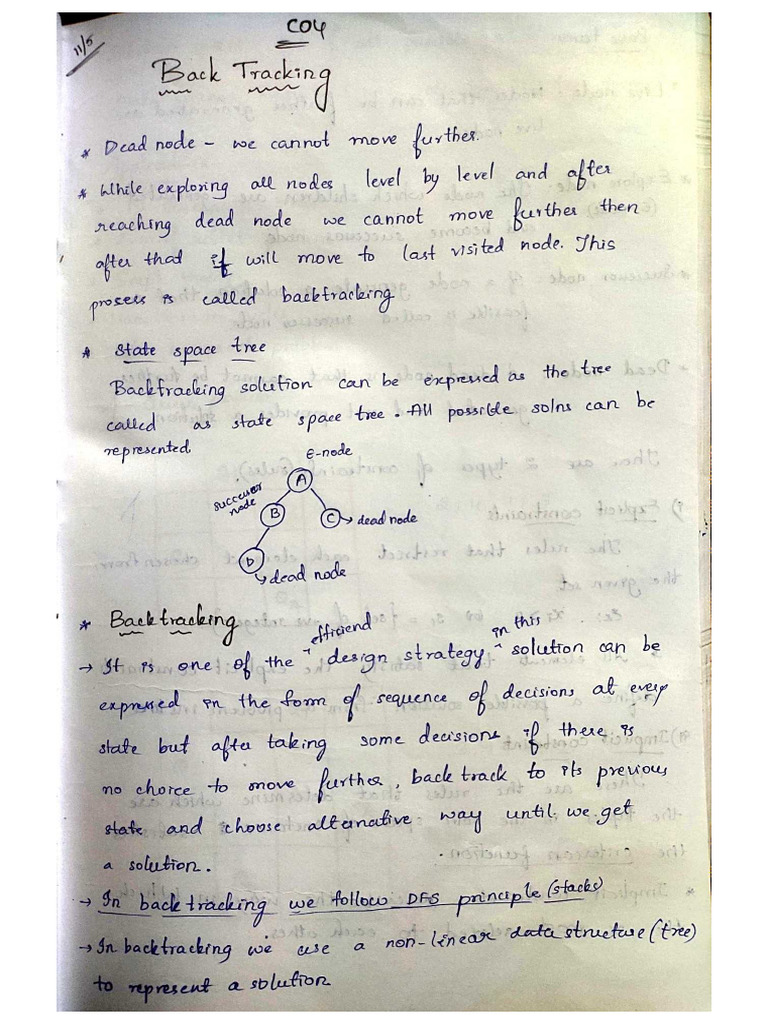 CO4
11/5
Back Tracking
* Dead node - we cannot move further.
* While exploring all nodes level by level and after
reaching dead node we cannot move further then
after that if will move to last visited node. This
process is called backtracking
* State space tree
Backtracking solution can be expressed as the tree
called as state space tree. All possible solns can be
represented.
E-node
A
successor
node
B
C → dead node
D
→ dead node
* Backtracking
→ It is one of the efficiend design strategy in this solution can be
expressed in the form of sequence of decisions at every
state but after taking some decisions if there is
no choice to move further, back track to its previous
state and choose alternative way until we get
a solution.
→ In back tracking we follow DFS principle (stacks)
→ In backtracking we use a non-linear data structure (tree)
to represent a solution